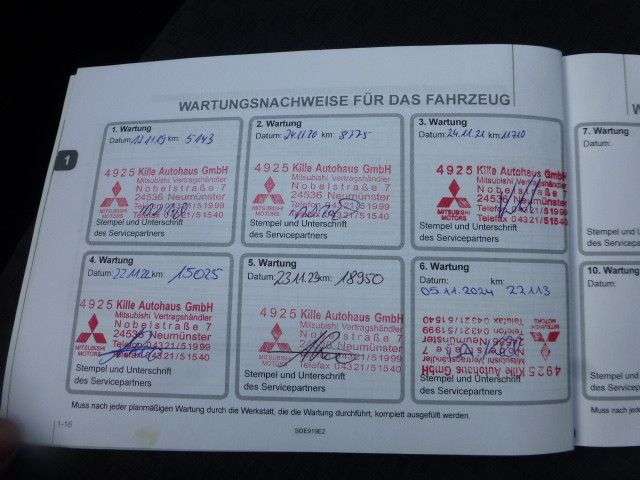 WARTUNGSNACHWEISE FÜR DAS FAHRZEUG
1
1. Wartung
Datum: 12.11.19 km: 5143
4925 Kille Autohaus GmbH
Mitsubishi Vertragshändler
Nobelstraße 7
24536 Neumünster
Telefon 04321/51999
Telefax 04321/51540
MITSUBISHI
MOTORS
Stempel und Unterschrift
des Servicepartners
2. Wartung
Datum: 24.11.20 km: 8775
4925 Kille Autohaus GmbH
Mitsubishi Vertragshändler
Nobelstraße 7
24536 Neumünster
Telefon 04321/51999
Telefax 04321/51540
MITSUBISHI
MOTORS
Stempel und Unterschrift
des Servicepartners
3. Wartung
Datum: 24.11.21 km: 11710
4925 Kille Autohaus GmbH
Mitsubishi Vertragshändler
Nobelstraße 7
24536 Neumünster
Telefon 04321/51999
Telefax 04321/51540
MITSUBISHI
MOTORS
Stempel und Unterschrift
des Servicepartners
4. Wartung
Datum: 22.11.22 km: 15025
4925 Kille Autohaus GmbH
Mitsubishi Vertragshändler
Nobelstraße 7
24536 Neumünster
Telefon 04321/51999
Telefax 04321/51540
MITSUBISHI
MOTORS
Stempel und Unterschrift
des Servicepartners
5. Wartung
Datum: 23.11.23 km: 18950
4925 Kille Autohaus GmbH
Mitsubishi Vertragshändler
Nobelstraße 7
24536 Neumünster
Telefon 04321/51999
Telefax 04321/51540
MITSUBISHI
MOTORS
Stempel und Unterschrift
des Servicepartners
6. Wartung
Datum: km
05.11.2024 27113
4925 Kille Autohaus GmbH
Mitsubishi Vertragshändler
Nobelstraße 7
24536 Neumünster
Telefon 04321/51999
Telefax 04321/51540
MITSUBISHI
MOTORS
Stempel und Unterschrift
des Servicepartners
Muss nach jeder planmäßigen Wartung durch die Werkstatt, die die Wartung durchführt, komplett ausgefüllt werden.
1-16
SDE919E2
7. Wartung
Datum:
Stempel und
des Service
10. Wartung
Datum:
Stempel und
des Service
Muss nach jed